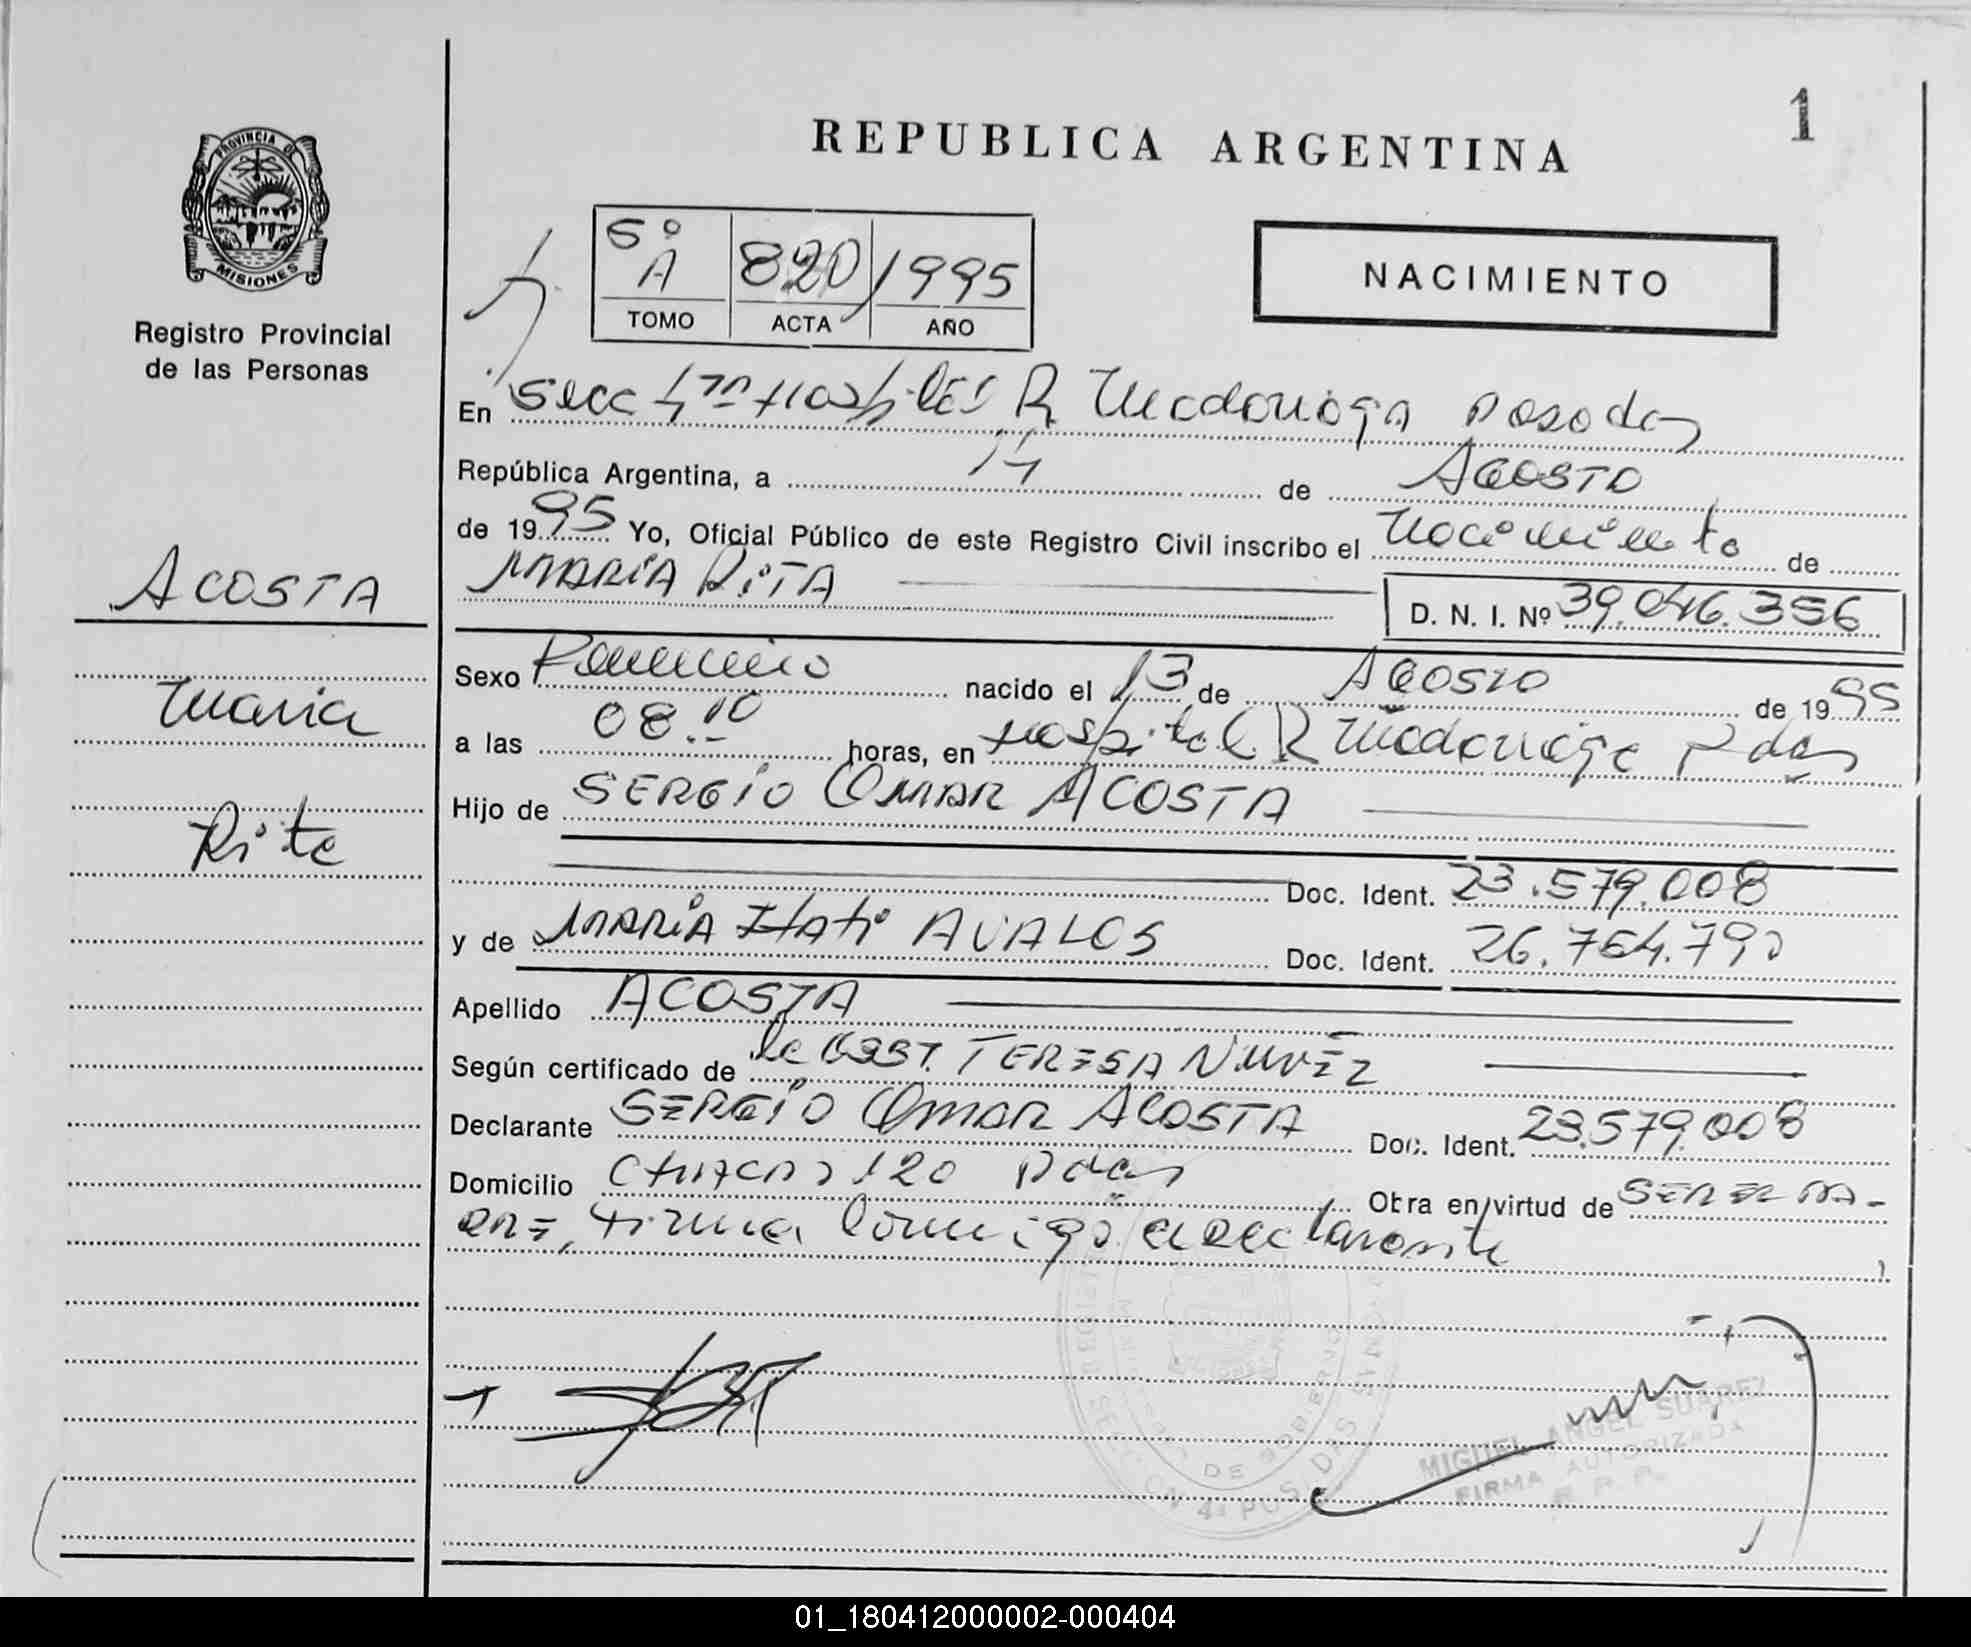 REPUBLICA ARGENTINA
1
PROVINCIA DE
MISIONES
Registro Provincial
de las Personas
5º A 820 1995
TOMO ACTA AÑO
NACIMIENTO
En Secc 4ta Hospital R Madariaga Posadas
República Argentina, a 14 de AGOSTO
de 1995 Yo, Oficial Público de este Registro Civil inscribo el nacimiento de
MARIA RITA D. N. I. Nº 39.046.356
ACOSTA
Maria
Rita
Sexo Femenino nacido el 13 de AGOSTO de 1995
a las 08.10 horas, en Hospital R Madariaga Pdas
Hijo de SERGIO OMAR ACOSTA
Doc. Ident. 23.579.008
y de MARIA ITATI AVALOS Doc. Ident. 26.764.790
Apellido ACOSTA
Según certificado de la OBST. TERESA NUÑEZ
Declarante SERGIO OMAR ACOSTA Doc. Ident. 23.579.008
Domicilio 120 Pdas Obra en virtud de SER EL PA-
DRE, firma conmigo el declarante
MINISTERIO DE GOBIERNO
SECCION 4a POSADAS
MIGUEL ANGEL SUAREZ
FIRMA AUTORIZADA
R. P. P.
01_180412000002-000404